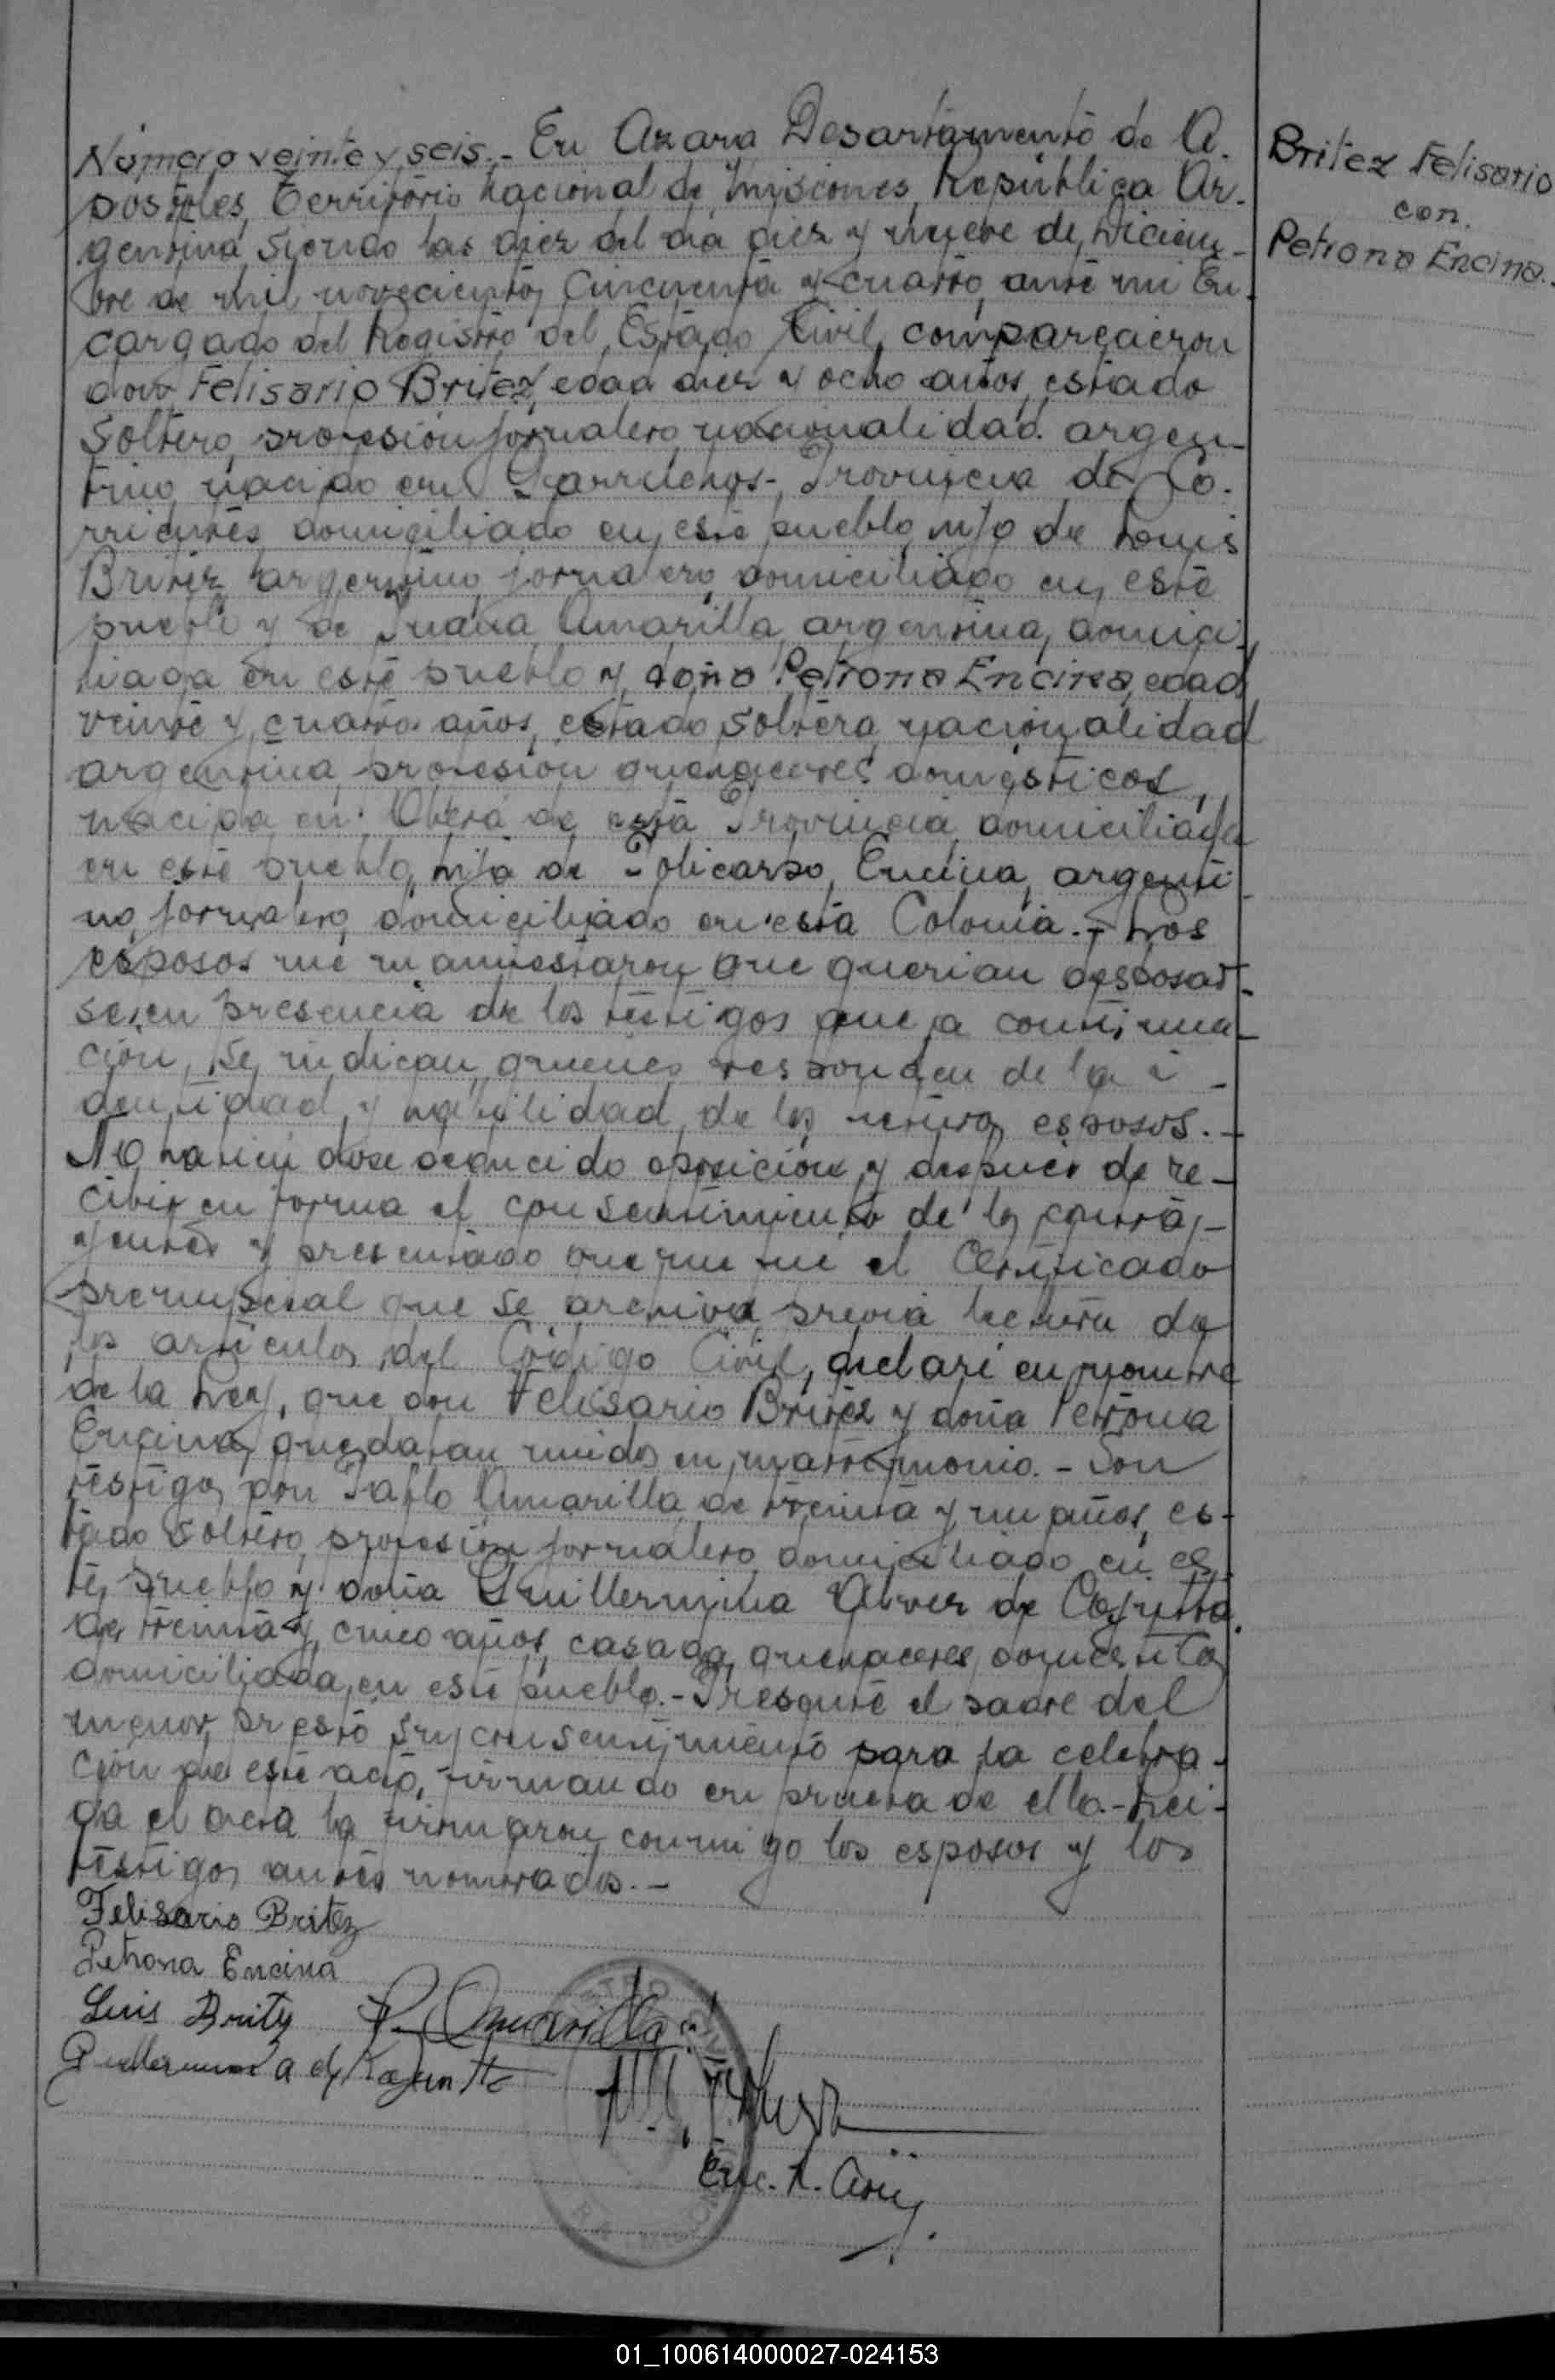 Número veinte y seis.- En Azara Departamento de A.
póstoles, Territorio Nacional de Misiones, República Ar-
gentina, siendo las diez del día diez y nueve de Diciem-
bre de mil novecientos cincuenta y cuatro, ante mi En-
cargado del Registro del Estado Civil, comparecieron
don Felisario Britez, edad diez y ocho años, estado
soltero, profesión jornalero, nacionalidad argen-
tino, nacido en Garruchos- Provincia de Co-
rrientes domiciliado en este pueblo, hijo de Luis
Britez, argentino, jornalero, domiciliado en este
pueblo y de Juana Amarilla, argentina, domici-
liada en este pueblo y doña Petrona Encina, edad
veinte y cuatro años, estado soltera, nacionalidad
argentina, profesión quehaceres domésticos,
nacida en Oberá de esta Provincia, domiciliada
en este pueblo, hija de Policarpo Encina, argenti-
no, jornalero, domiciliado en esta Colonia.- Los
esposos me manifestaron que querían desposar-
se en presencia de los testigos que a continua-
ción, se indican, quienes responden de la i-
dentidad y habilidad de los futuros esposos.-
No habiéndose deducido oposición, y después de re-
cibir en forma el consentimiento de los contra-
yentes y presentado que me fue el Certificado
prenupcial que se archiva, previa lectura de
los artículos del Código Civil, declaré en nombre
de la Ley, que don Felisario Britez y doña Petrona
Encina, quedaban unidos en matrimonio.- Son
testigos don Pablo Amarilla de treinta y un años, es-
tado soltero, profesión jornalero, domiciliado en es-
te pueblo y doña Guillermina Alvez de
de treinta y cinco años, casada, quehaceres domésticos
domiciliada, en este pueblo.- Presente el padre del
menor, prestó su consentimiento para la celebra-
ción de este acto, firmando en prueba de ello.- Leí-
da el acta la firmaron conmigo los esposos y los
testigos antes nombrados.-
Felisario Britez
Petrona Encina
Luis Britez P. Amarilla
Guillermina A de
Enc. R. Civil
Britez Felisario
con.
Petrona Encina.
01_100614000027-024153